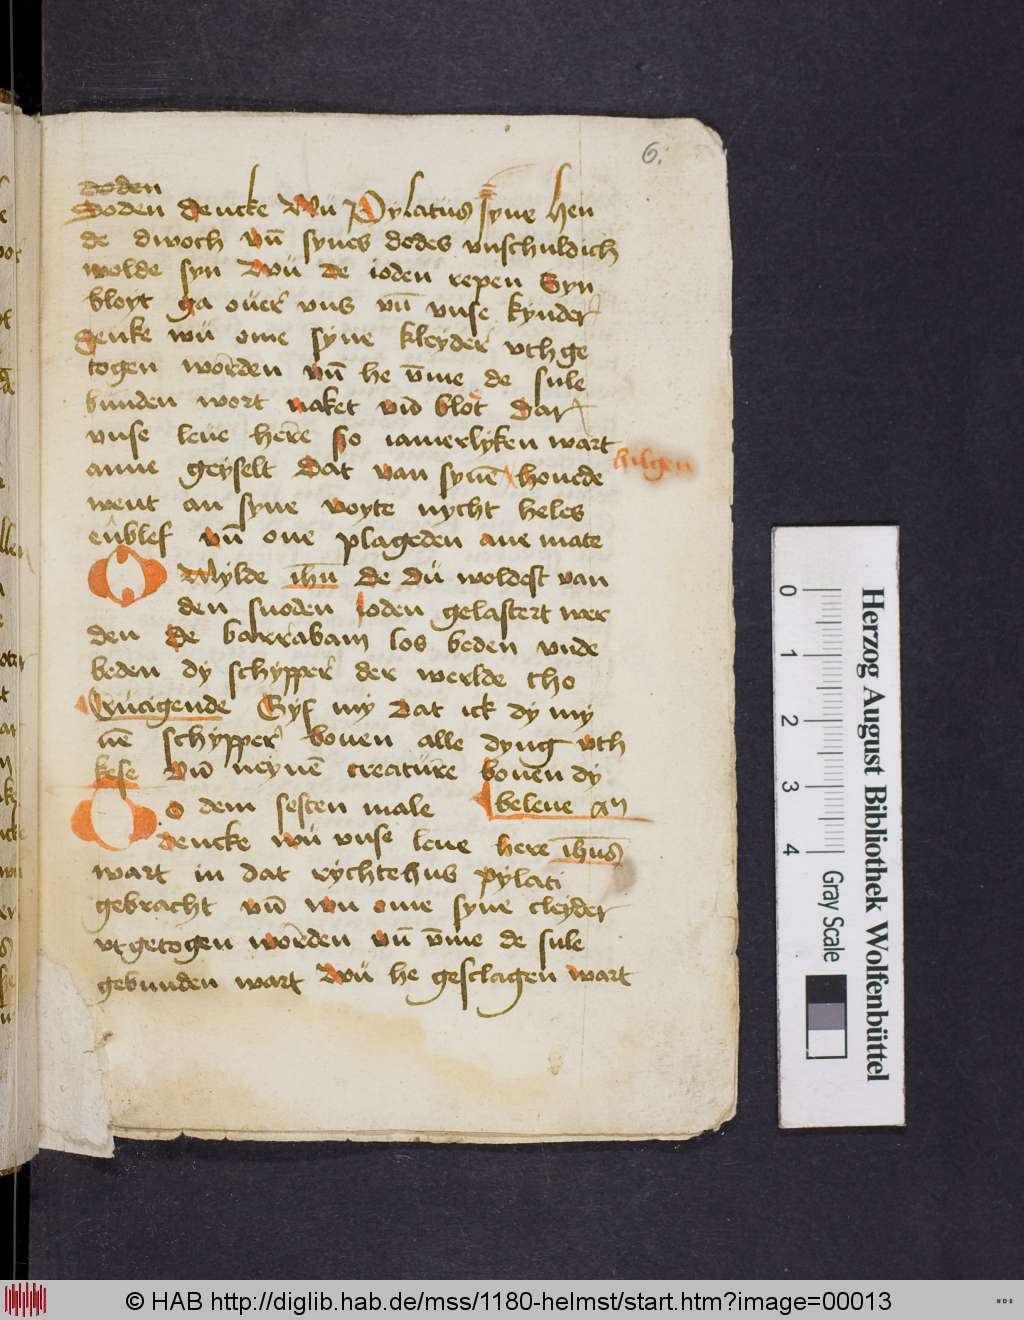 6.
doden
Soden dencke Wü Pylatus syne hen
de dwoch vn̄ synes dodes vnschuldich
wolde syn Wü de ioden repen Syn
bloyt ga ouer vns vn̄ vnse kynder
Denke wü ome syne kleyder vthge
togen worden vn̄ he v̄me de sule
bunden wort naket vnd blot Dar
vnse leue here so iamerlyken wart
hilgen
anne geyselt Dat van synē houede
went an syne voyte nycht heles
enblef vn̄ one plageden ane mate
O Mylde ihū De Dü woldest van
den snoden ioden gelastert wer
den De barrabam los beden vnde
beden dy schypper der werlde tho
Crucigende Gyf my Dat ick dy my
nē schypper bouen alle dyng vth
kese Vn̄ neynē creatüre bouen dy
To dem sesten male beleue Am
dencke wü vnse leue here ihūs
wart in dat rychtehus pylati
gebracht vn̄ wu ome syne cleyder
vtgetogen worden vn̄ v̄me de sule
gebunden wart Wü he gesclagen wart
0 1 2 3 4
Gray Scale
Herzog August Bibliothek Wolfenbüttel
© HAB http://diglib.hab.de/mss/1180-helmst/start.htm?image=00013